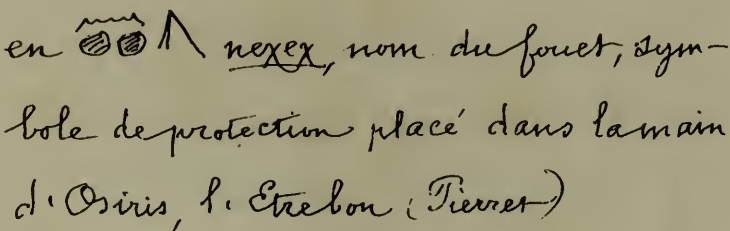 en 𓈖𓐍𓐍𓌅 nexex, nom du fouet, sym-
bole de protection placé dans la main
d'Osiris, l'Etre bon (Pierret)